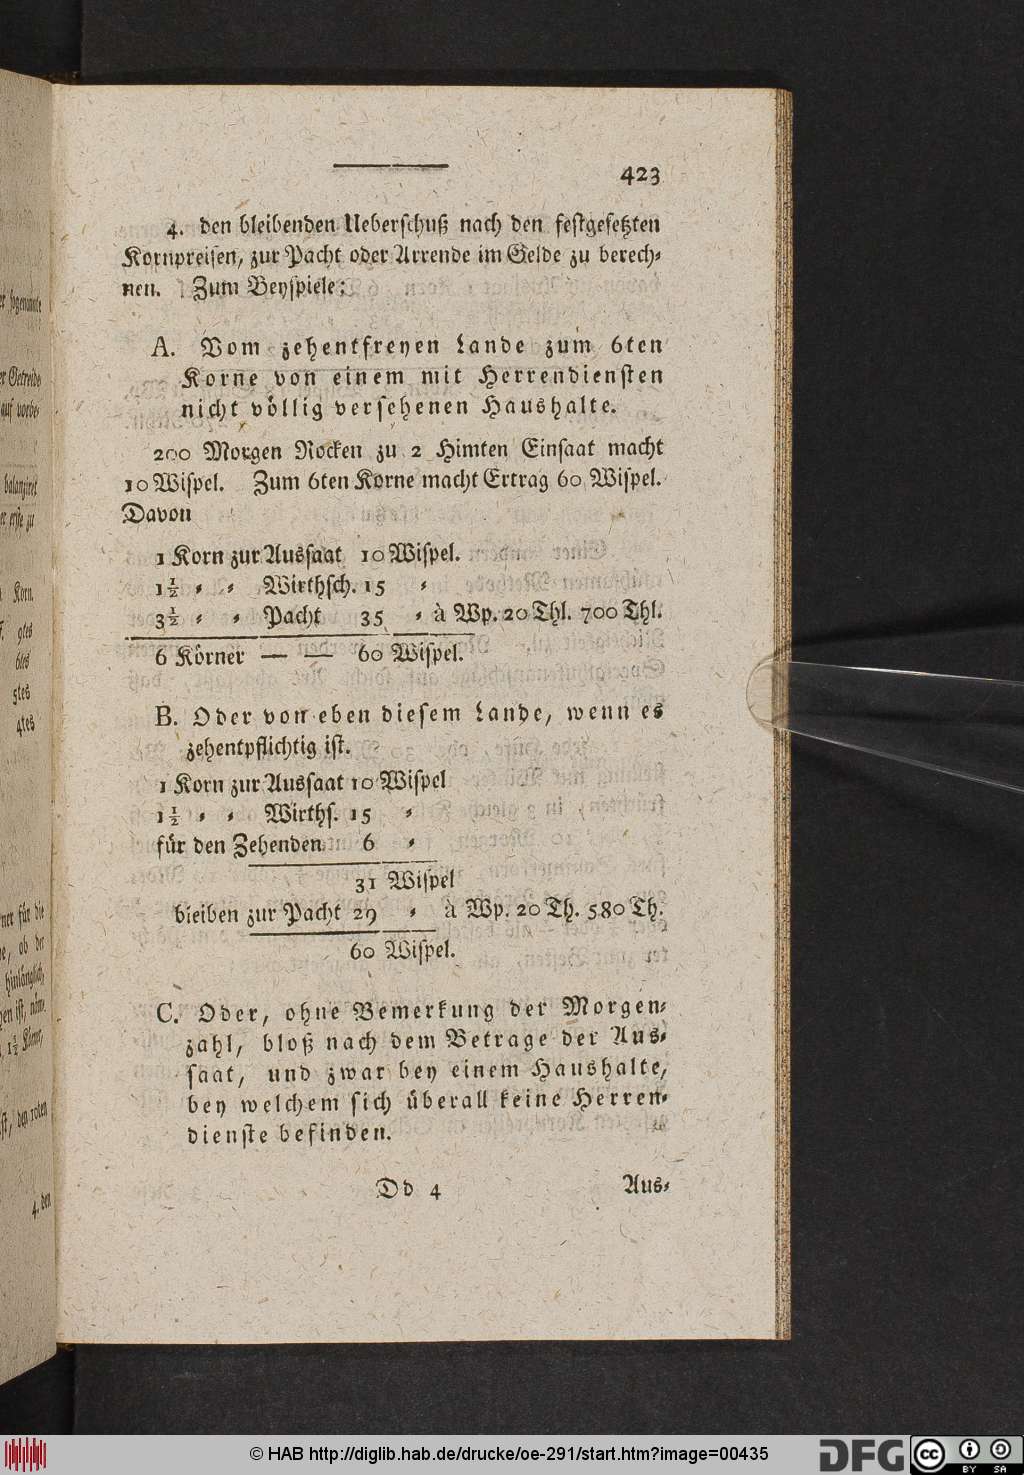 423
4. den bleibenden Ueberschuß nach den festgesetzten
Kornpreisen, zur Pacht oder Arrende im Gelde zu berech⸗
nen. Zum Beyspiele:
A. Vom zehentfreyen Lande zum 6ten
Korne von einem mit Herrendiensten
nicht völlig versehenen Haushalte.
200 Morgen Rocken zu 2 Himten Einsaat macht
10 Wispel. Zum 6ten Korne macht Ertrag 60 Wispel.
Davon
1 Korn zur Aussaat 10 Wispel.
1½ ⸗ ⸗ Wirthsch. 15 ⸗
3½ ⸗ ⸗ Pacht 35 ⸗ à Wp. 20 Thl. 700 Thl.
6 Körner — — 60 Wispel.
B. Oder von eben diesem Lande, wenn es
zehentpflichtig ist.
1 Korn zur Aussaat 10 Wispel
1½ ⸗ ⸗ Wirths. 15 ⸗
für den Zehenden 6 ⸗
31 Wispel
bleiben zur Pacht 29 ⸗ à Wp. 20 Th. 580 Th.
60 Wispel.
C. Oder, ohne Bemerkung der Morgen⸗
zahl, bloß nach dem Betrage der Aus⸗
saat, und zwar bey einem Haushalte,
bey welchem sich überall keine Herren⸗
dienste befinden.
Dd 4 Aus⸗
er sogenannte
er Getreide
auf vorbe⸗
balanziret
er erste zu
Korn.
9tes
6tes
5tes
4tes
ner für die
e, ob der
hinlänglich,
hen ist, näm⸗
1½ Korne,
ist, den 10ten
4. den
© HAB http://diglib.hab.de/drucke/oe-291/start.htm?image=00435
DFG
cc
BY SA